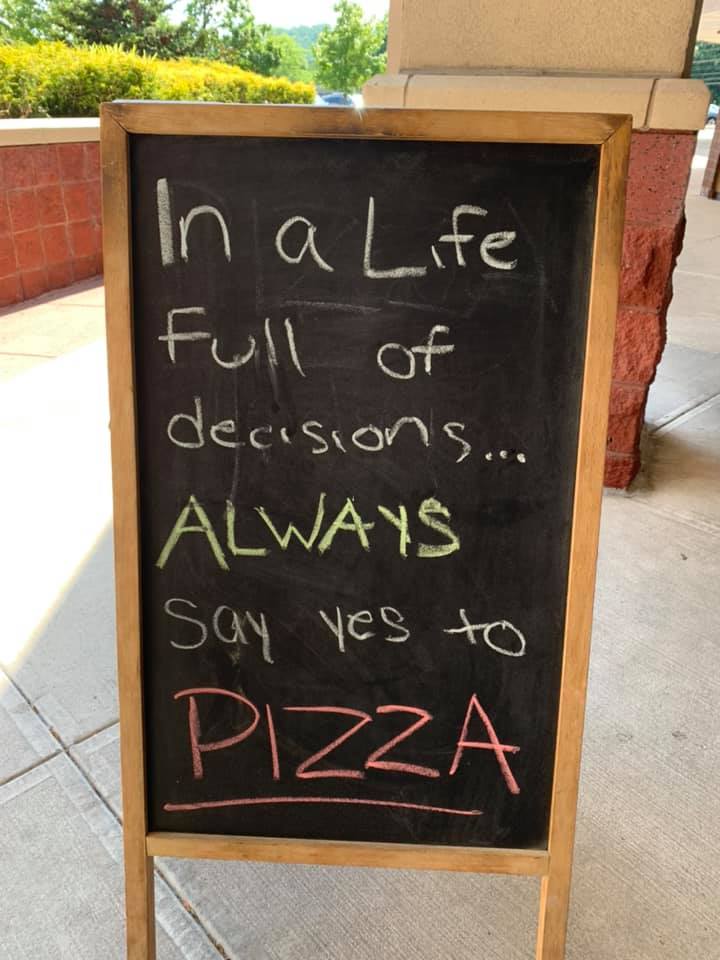 In a Life
Full of
decisions...
ALWAYS
say yes to
PIZZA